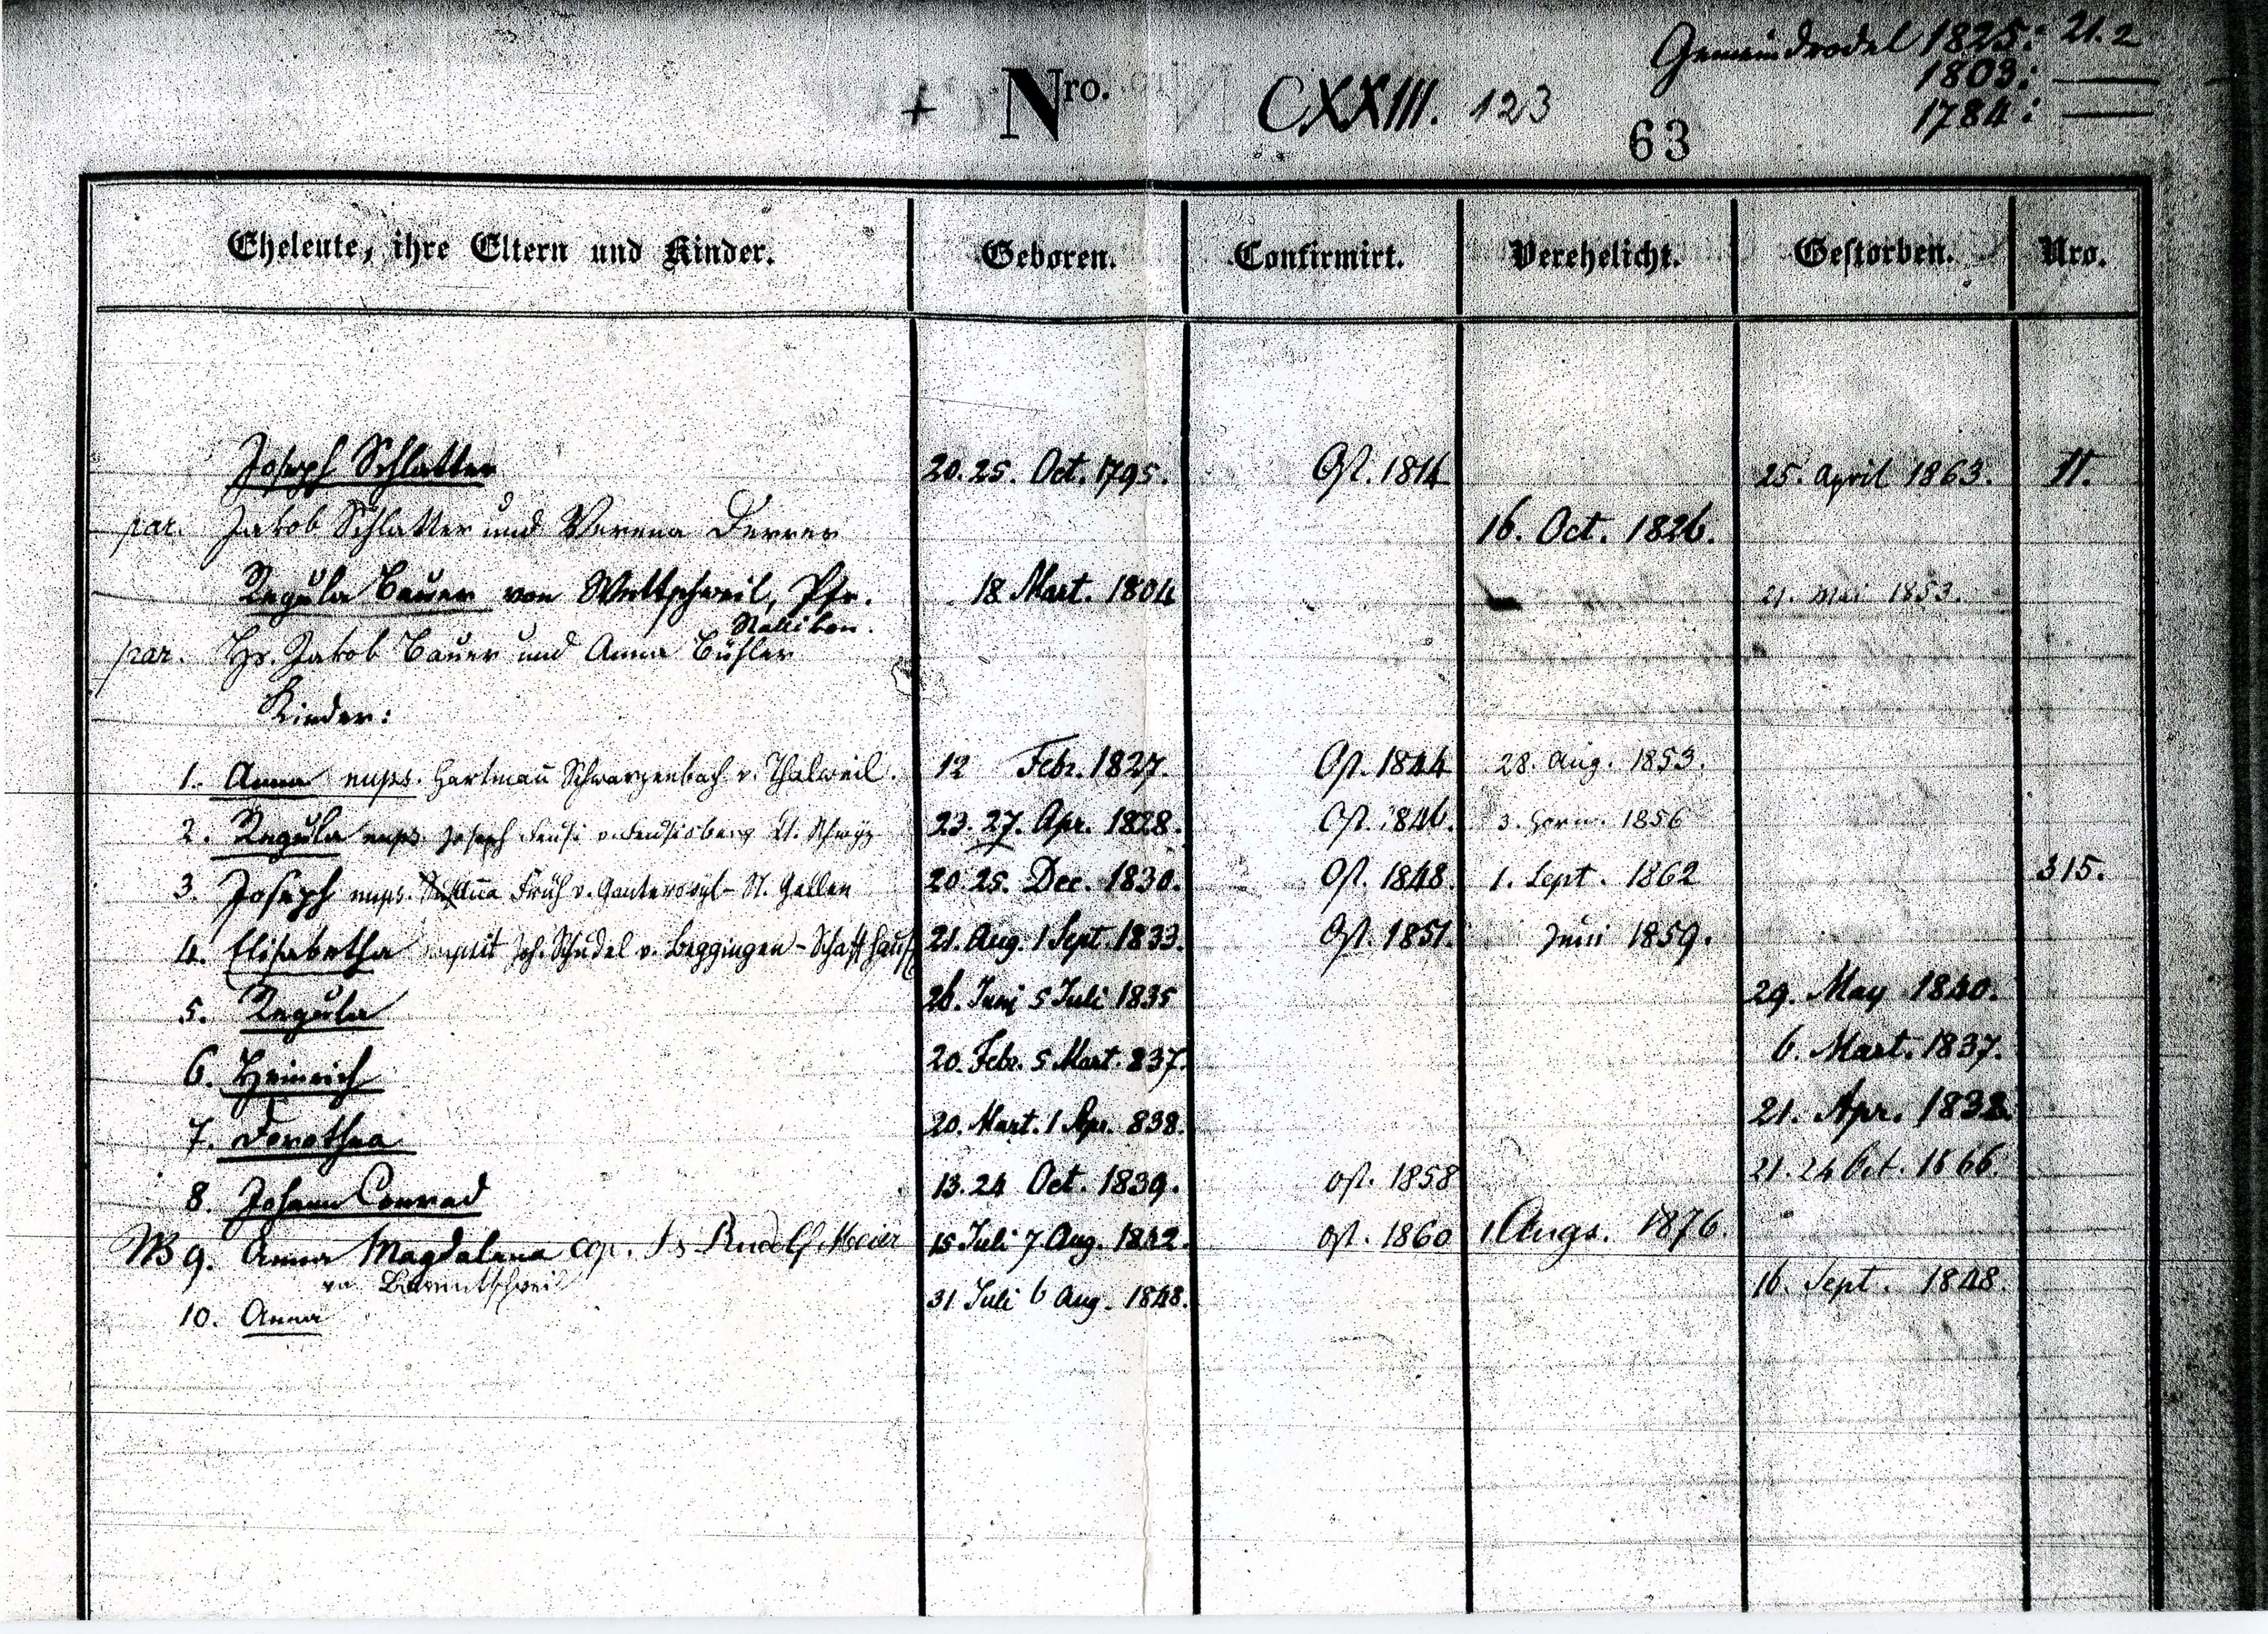 Gemeindrodel 1825: 21.2
1803: —
1784: —
+ Nro. CXXIII. 123
63
Eheleute, ihre Eltern und Kinder. Geboren. Confirmirt. Verehelicht. Gestorben. Nro.
Joseph Schlatter 20. 25. Oct. 1795. Ost. 1814 25. April 1863. 11.
par. Jakob Schlatter und Verena Derrer 16. Oct. 1826.
Regula Bauer von Wettschweil, Pfr. 18 Mart. 1804 21. Mai 1853.
Stallikon.
par. Hs. Jakob Bauer und Anna Bühler
Kinder:
1. Anna nups. Hartmañ Schwarzenbach v. Thalweil. 12 Febr. 1827. Ost. 1844 28. Aug. 1853.
2. Regula nups. Joseph Feusi v. Feusisberg Ct. Schwyz 23. 27. Apr. 1828. Ost. 1846. 3. Horn. 1856
3. Joseph nups. Früh v. St. Gallen 20 25. Dec. 1830. Ost. 1848. 1. Sept. 1862 315.
4. Elisabetha nupsit Joh. Schudel v. Beggingen - Schaffhaus 21. Aug. 1 Sept. 1833. Ost. 1851. Juni 1859.
5. Regula 26. Juni 5 Juli 1835 29. May 1840.
6. Heinrich 20. Febr. 5 Mart. 837. 6. Mart. 1837.
7. Dorothea 20. Mart. 1 Apr. 838. 21. Apr. 1838.
8. Johann Conrad 13. 24 Oct. 1839. Ost. 1858 21. 24 Oct. 1866.
NB 9. Anna Magdalena cop. Rudolf Meier 15 Juli 7 Aug. 1842. Ost. 1860 1 Augs. 1876.
10. Anna 31 Juli 6 Aug. 1848. 16. Sept. 1848.